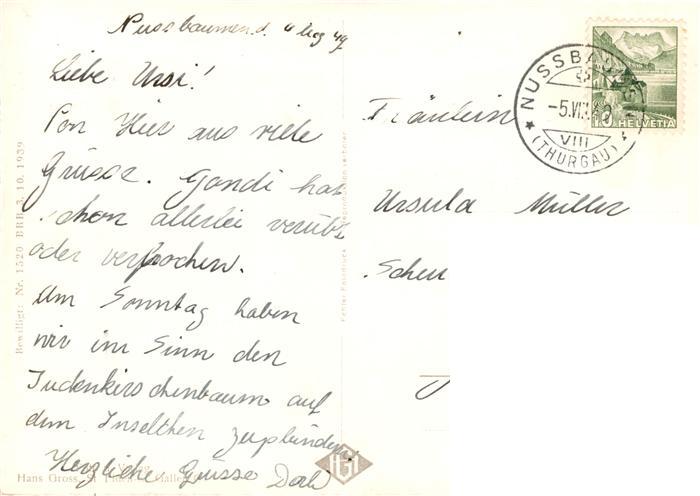 Nussbaumen d. 4 Aug 49
Liebe Ursi!
Von Hier aus viele
Grüsse. Gandi hat
schon allerlei verübt
oder verbrochen.
Am Sonntag haben
wir im Sinn den
Judenkirschenbaum auf
dem Inselchen zu plündern.
Herzliche Grüsse
Fräulein
Ursula Müller
NUSSBAUMEN
-5.VIII.
VIII
(THURGAU)
10 HELVETIA
Bewilligt: Nr. 1520 BRB 3. 10. 1939
Verlag
Hans Gross, St. Gallen
HGT